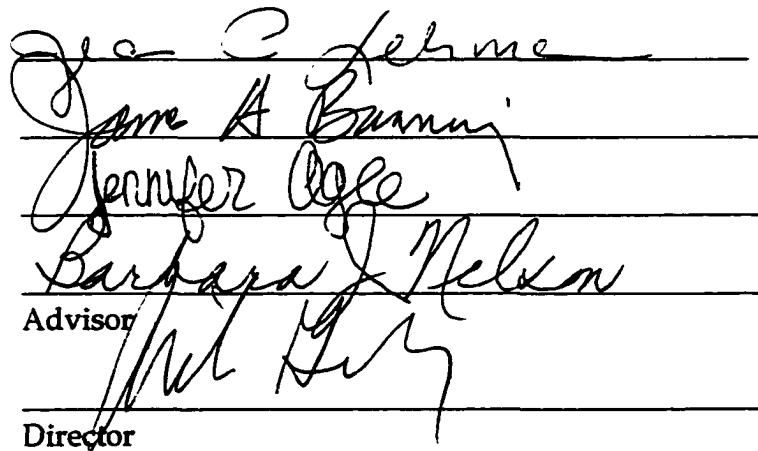 Jean C Lehme
James A Banning
Jennifer Ogle
Barbara J. Nelson
Advisor
Director